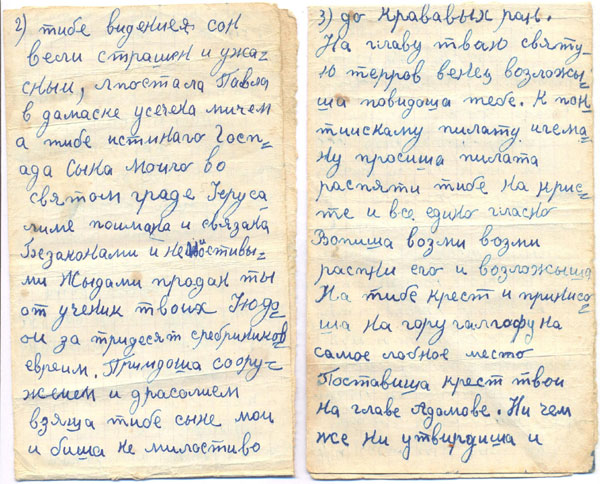 2) тибе видения сон
вели страшен и ужа=
сный, апостала Павла
в дамаске усечека мичем
а тибе истинаго Госп=
ада Сына Моиго во
святом граде Іеруса
лиме поимана и связана
Безаконами и немостивы=
ми Жыдами продан ты
от ученик твоих Июдо=
ои за тридесят сребриников
евреим. Приидоша соору=
жением и драсолием
взяша тибе сыне мои
и биша не милостиво
3) до кравaвых ран.
На главу тваю святу=
ю терров венец возложы=
ша повидоша тебе. К пон=
тиискаму пилату игема=
ну просиша пилата
распяти тибе на крис=
те и все едино гласно
Вопиша возми возми
распни его и возложыша
На тибе крест и принисо=
ша на гору галгофу на
самое лобное место
Поставиша крест твои
на главе Адамове. Ни чем
же ни утвирдиша и